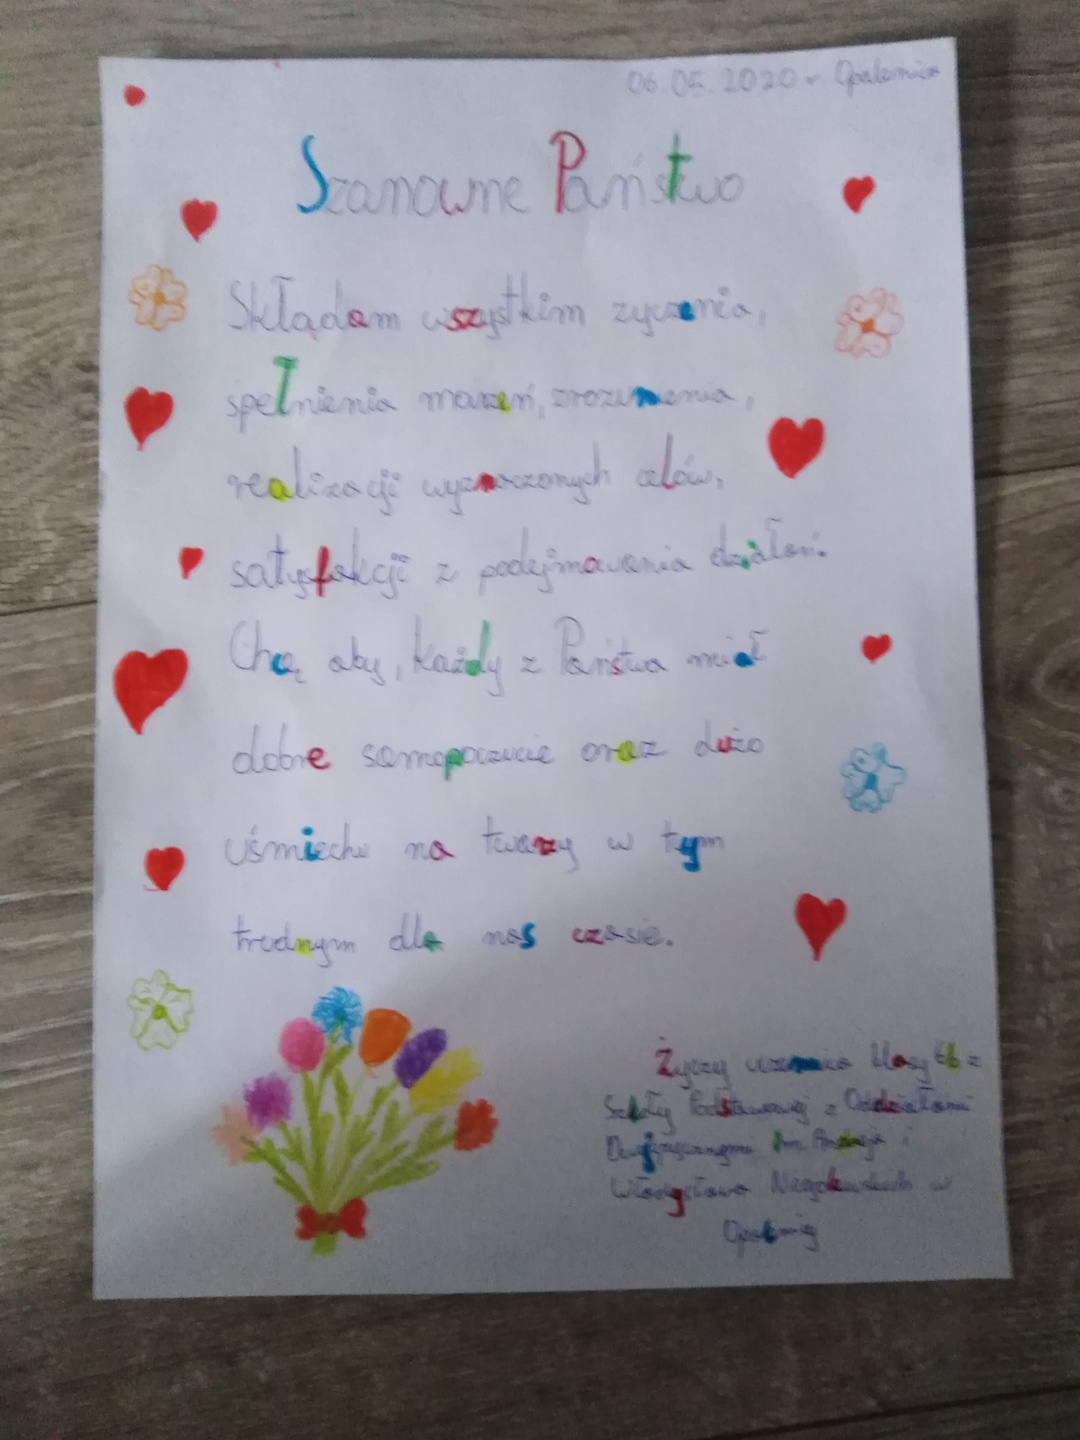 06.05.2020 r. Opalenica
Szanowne Państwo
Składam wszystkim życzenia,
spełnienia marzeń, zrozumienia,
realizacji wyznaczonych celów,
satysfakcji z podejmowania działań.
Chcę aby, każdy z Państwa miał
dobre samopoczucie oraz dużo
uśmiechu na twarzy w tym
trudnym dla nas czasie.
Życzy uczennica klasy 6b z
Szkoły Podstawowej z Oddziałami
Dwujęzycznymi im. Andrzeja i
Władysława Niegolewskich w
Opalenicy